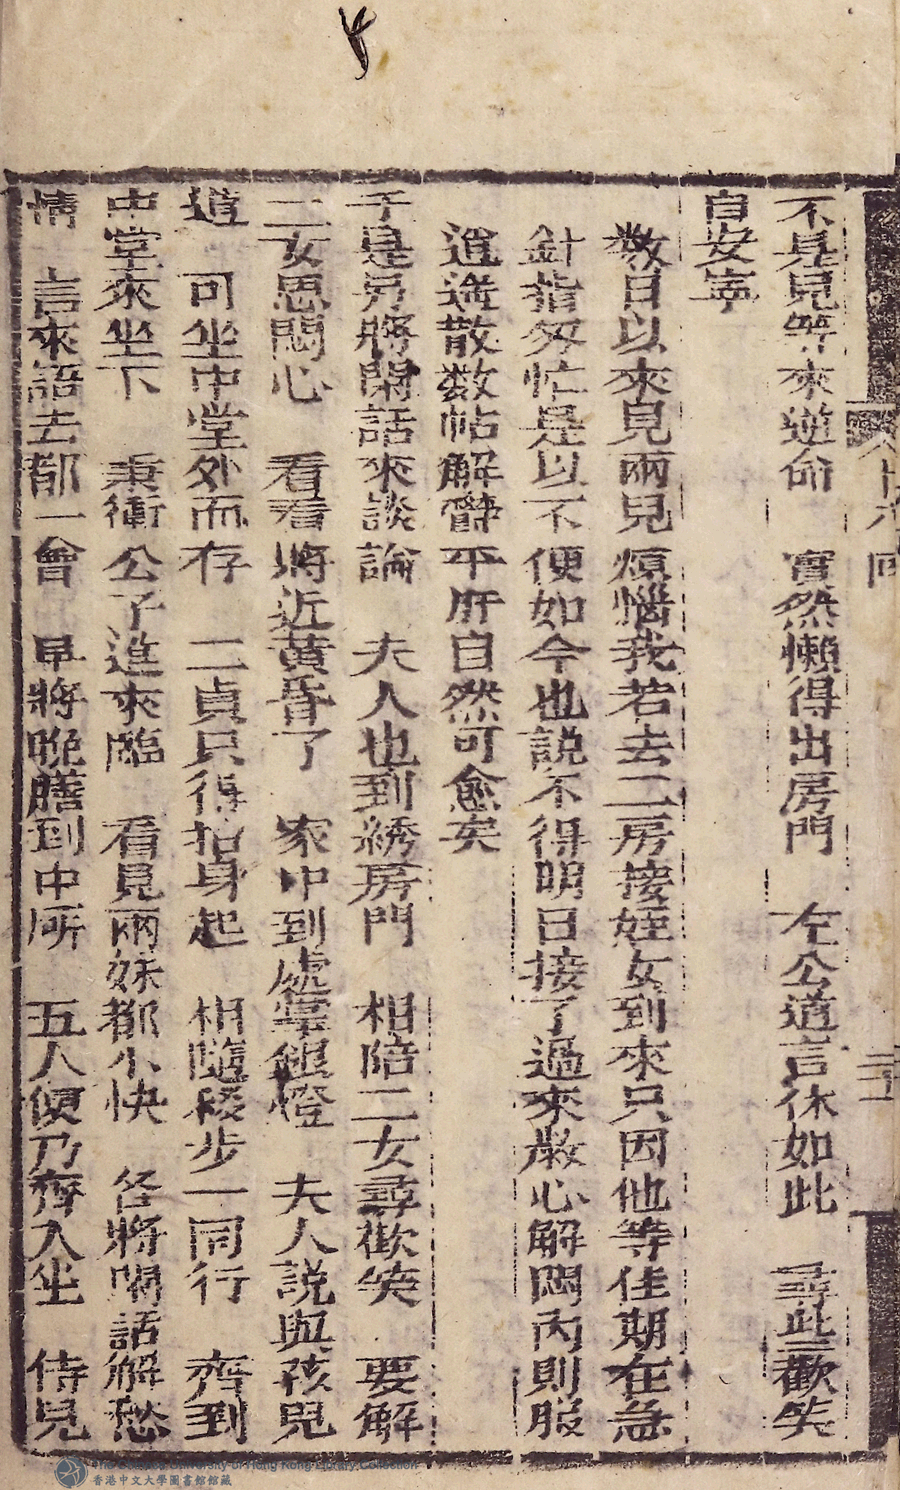 不是兒等來逆命　實然懶得出房門　左公道言休如此　尋些歡笑
自安寧
數日以來見兩兒煩惱我若去二房接姪女到來只因他等佳期在急
針指匆忙是以不便如今也說不得明日接了過來散心解悶內則服
逍遙散数帖解欝平肝自然可愈矣
于是另將閑話來談論　夫人也到綉房門　相陪二女尋歡笑　要解
二女思悶心　看看將近黃昏了　家中到處掌銀燈　夫人説與孩兒
道　可坐中堂外而存　二貞只得抬身起　相隨緩步一同行　齊到
中堂來坐下　秉衛公子進來臨　看見兩妹都不快　各將閑話解愁
情　言來語去郁一會　早將晚膳到中所　五人便乃齊入坐　侍兒
回
The Chinese University of Hong Kong Library Collection
香港中文大學圖書館館藏